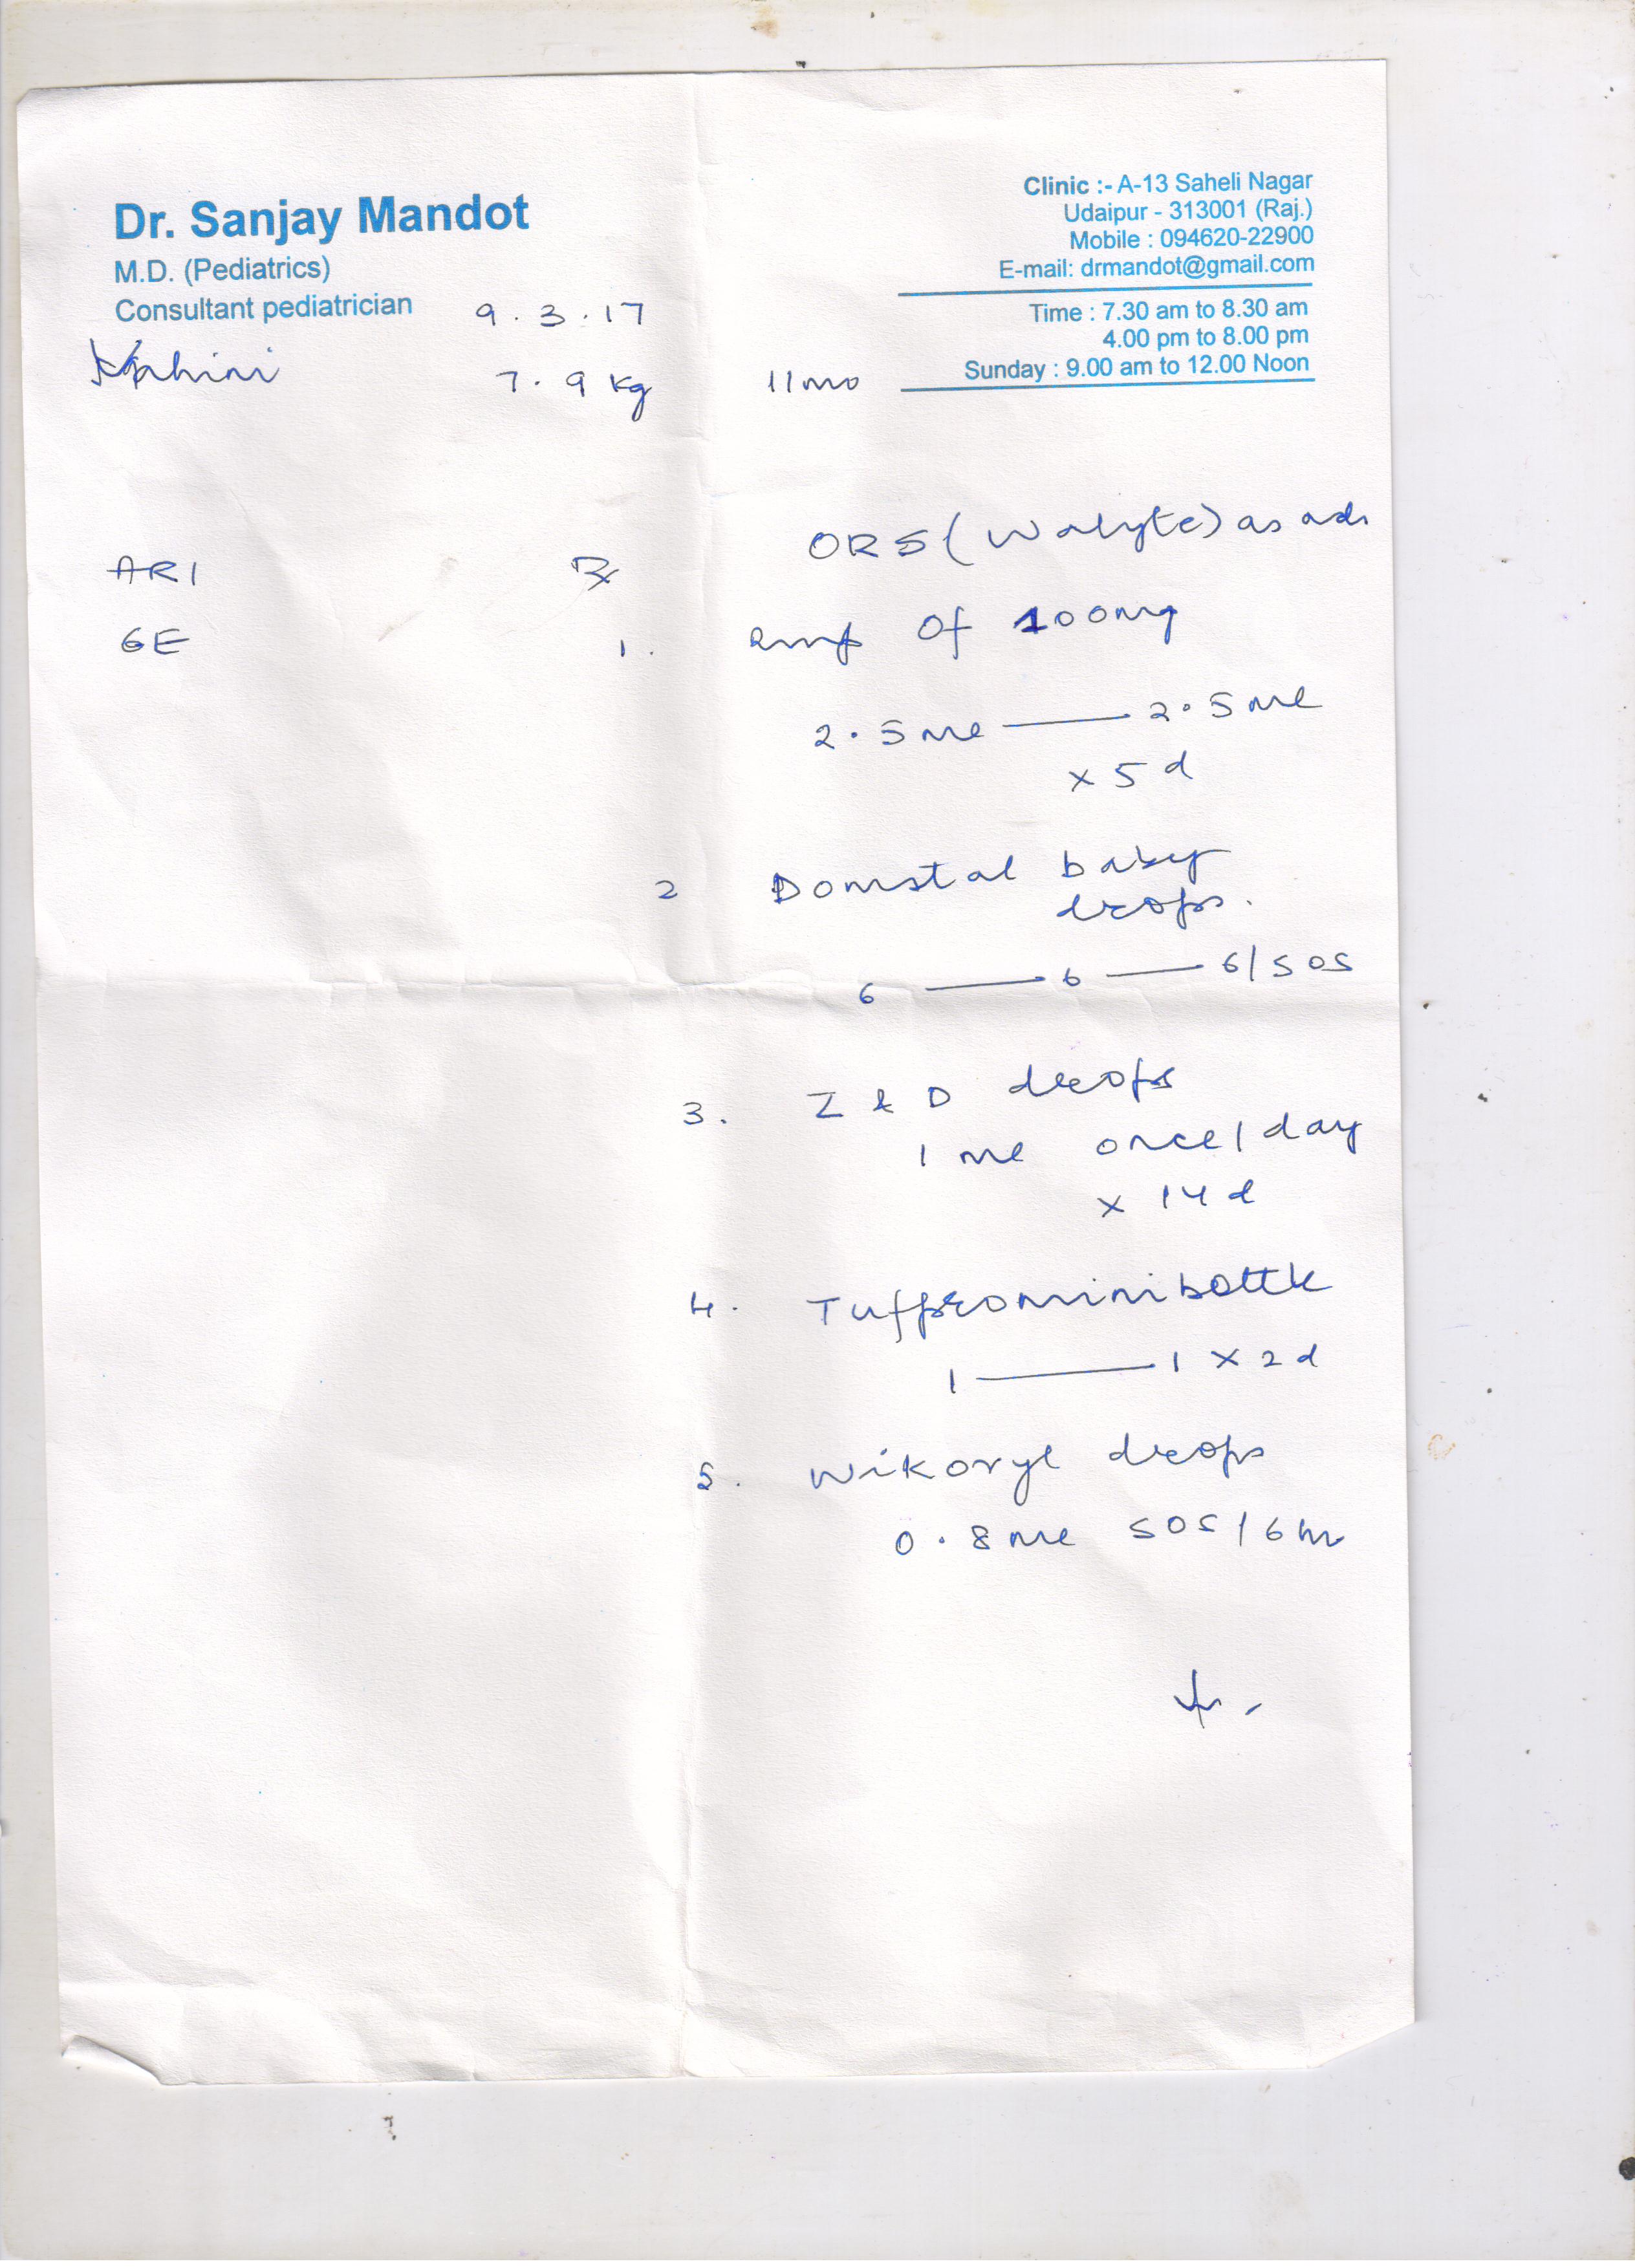 Dr. Sanjay Mandot
M.D. (Pediatrics)
Consultant pediatrician
Clinic :- A-13 Saheli Nagar
Udaipur - 313001 (Raj.)
Mobile : 094620-22900
E-mail: drmandot@gmail.com
Time : 7.30 am to 8.30 am
4.00 pm to 8.00 pm
Sunday : 9.00 am to 12.00 Noon
9.3.17
7.9 kg 11mo
ARI
GE
Rx
ORS (Walyte) as
1. of 100mg
2.5ml — 2.5ml
x 5d
2 Domstal baby
drops.
6 — 6 — 6/SOS
3. Z & D drops
1 ml once/day
x 14d
4. Tufpro minibottle
1 — 1 x 2d
5. Wikoryl drops
0.8ml SOS/6hr